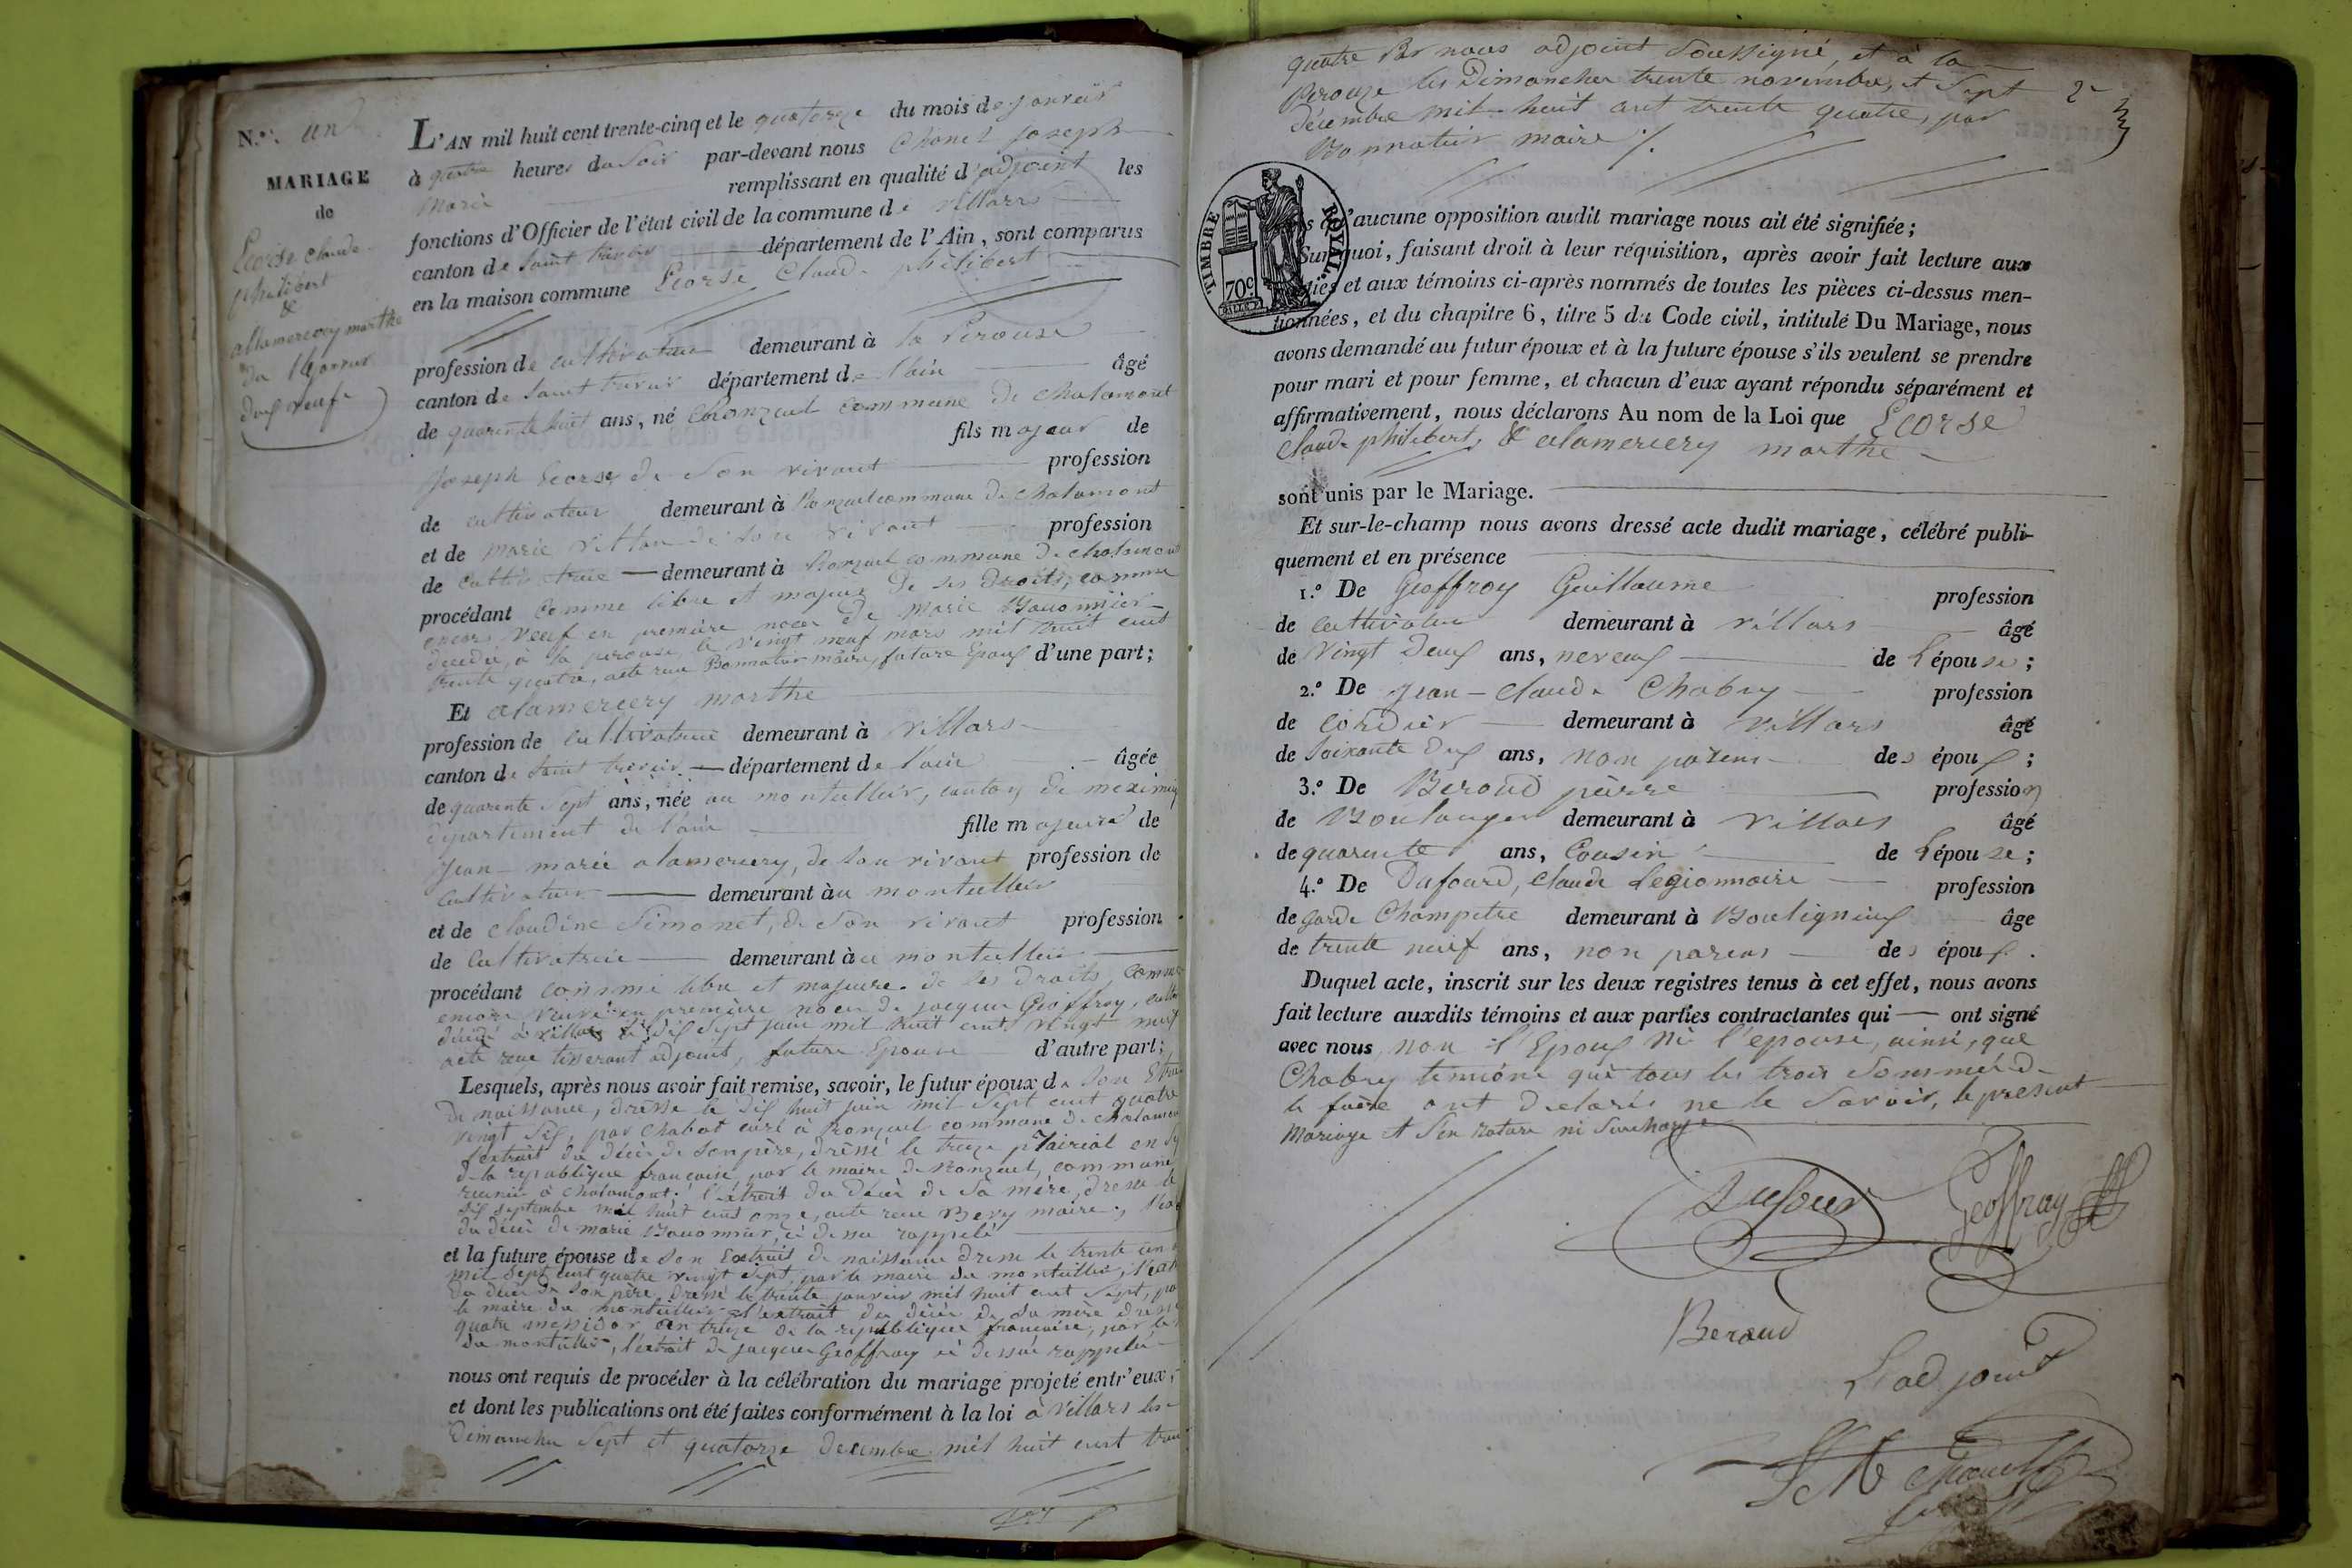 N.º: un
MARIAGE
de
Ecorse Claude
philibert
&
alamercery marthe
du 14 janvier
deux veufs
L'AN mil huit cent trente-cinq et le quatorze du mois de janvier
à quatre heures du soir par-devant nous Chanel joseph
marie remplissant en qualité d'adjoint les
fonctions d'Officier de l'état civil de la commune de villars
canton de saint trivier département de l'Ain, sont comparus
en la maison commune Ecorse Claude philibert
profession de cultivateur demeurant à la perouse
canton de saint trivier département de l'ain âgé
de quarante huit ans, né commune de chalamont
fils majeur de
joseph Ecorse de son vivant profession
de cultivateur demeurant à Ronzuel commune de chalamont
et de marie de son vivant profession
de cultivatrice demeurant à Ronzuel commune de chalamont
procédant comme libre et majeur de ses droits, comme
encore veuf en première noces de marie
décédée, à la perouse, le vingt neuf mars mil huit cent
trente quatre, acte reçu Bonnatier maire, future Epoux d'une part;
Et alamercery marthe
profession de cultivatrice demeurant à villars
canton de saint trivier département de l'ain âgée
de quarante sept ans, née au montellier, canton de meximieux
département de l'ain fille majeure de
Jean-marie alamercery, de son vivant profession de
cultivateur demeurant àu montellier
et de claudine Simonet, de son vivant profession
de cultivatrice demeurant àu montellier
procédant comme libre et majeure de ses droits, comme
encore veuve en première noces de jacques Geoffray,
décédé à villars le dix sept juin mil huit cent vingt neuf
acte reçu tisserant adjoint, future Epouse d'autre part;
Lesquels, après nous avoir fait remise, savoir, le futur époux de son
de naissance, dressé le dix huit juin mil sept cent quatre
vingt six, par chabot curé à Ronzuel commune de chalamont
l'extrait du décès de son père, dressé le treize prairial an
de la republique française, par le maire de Ronzuel, commune
reunie à chalamont; l'extrait du décès de sa mère, dressé le
dix septembre mil huit cent onze, acte reçu maire,
du décès de marie ci dessus rappelé
et la future épouse de son Extrait de naissance dressé le trente un
mil sept cent quatre vingt sept, par le maire du montellier,
du décès de son père, dressé le trente janvier mil huit cent sept,
le maire du montellier l'extrait du décès de sa mère dressé
quatre messidor an treize de la republique française, par le
du montellier, l'extrait de jacques Geoffray ci dessus rappelé
nous ont requis de procéder à la célébration du mariage projeté entr'eux,
et dont les publications ont été faites conformément à la loi à villars les
Dimanches sept et quatorze decembre mil huit cent
quatre Par nous adjoint soussigné, et à la
perouse les Dimanches trente novembre, et sept
décembre mil huit cent trente quatre, par
Bonnatier maire
TIMBRE ROYAL
70c
'aucune opposition audit mariage nous ait été signifiée;
Sur quoi, faisant droit à leur réquisition, après avoir fait lecture aux
et aux témoins ci-après nommés de toutes les pièces ci-dessus men-
tionnées, et du chapitre 6, titre 5 du Code civil, intitulé Du Mariage, nous
avons demandé au futur époux et à la future épouse s'ils veulent se prendre
pour mari et pour femme, et chacun d'eux ayant répondu séparément et
affirmativement, nous déclarons Au nom de la Loi que Ecorse
Claude philibert, & alamercery marthe
sont unis par le Mariage.
Et sur-le-champ nous avons dressé acte dudit mariage, célébré publi-
quement et en présence
1.º De Geoffroy Guillaume profession
de cultivateur demeurant à villars âgé
de vingt deux ans, neveux de L'épouse;
2.º De Jean-claude Chabry profession
de cordier demeurant à villars âgé
de soixante dix ans, non parens des époux;
3.º De Beroud pierre profession
de Boulanger demeurant à villars âgé
de quarente ans, Cousin de L'épouse;
4.º De Dufourd, claude Legionnaire profession
de garde Champetre demeurant à Bouligneux âge
de trente neuf ans, non parens des époux.
Duquel acte, inscrit sur les deux registres tenus à cet effet, nous avons
fait lecture auxdits témoins et aux parties contractantes qui ont signé
avec nous, non l'Epoux ni l'epouse, ainsi, que
Chabry temoins qui tous les trois sommé de
le faire ont declaré ne le savoir, le present
Mariage et sen rature ni surcharge
Dufour
Geoffray
Beraud
L'adjoint